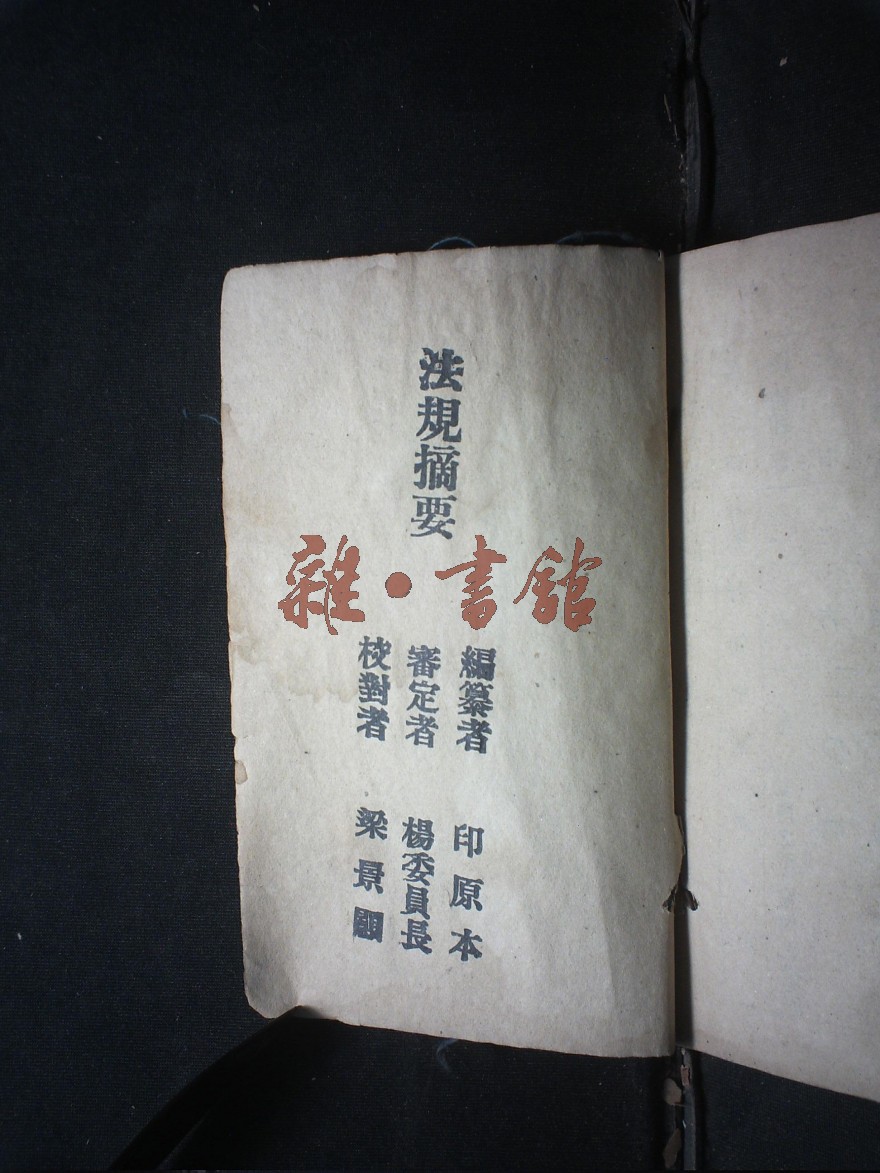 法規摘要
雜·書館
編纂者 印原本
審定者 楊委員長
校對者 梁景顯